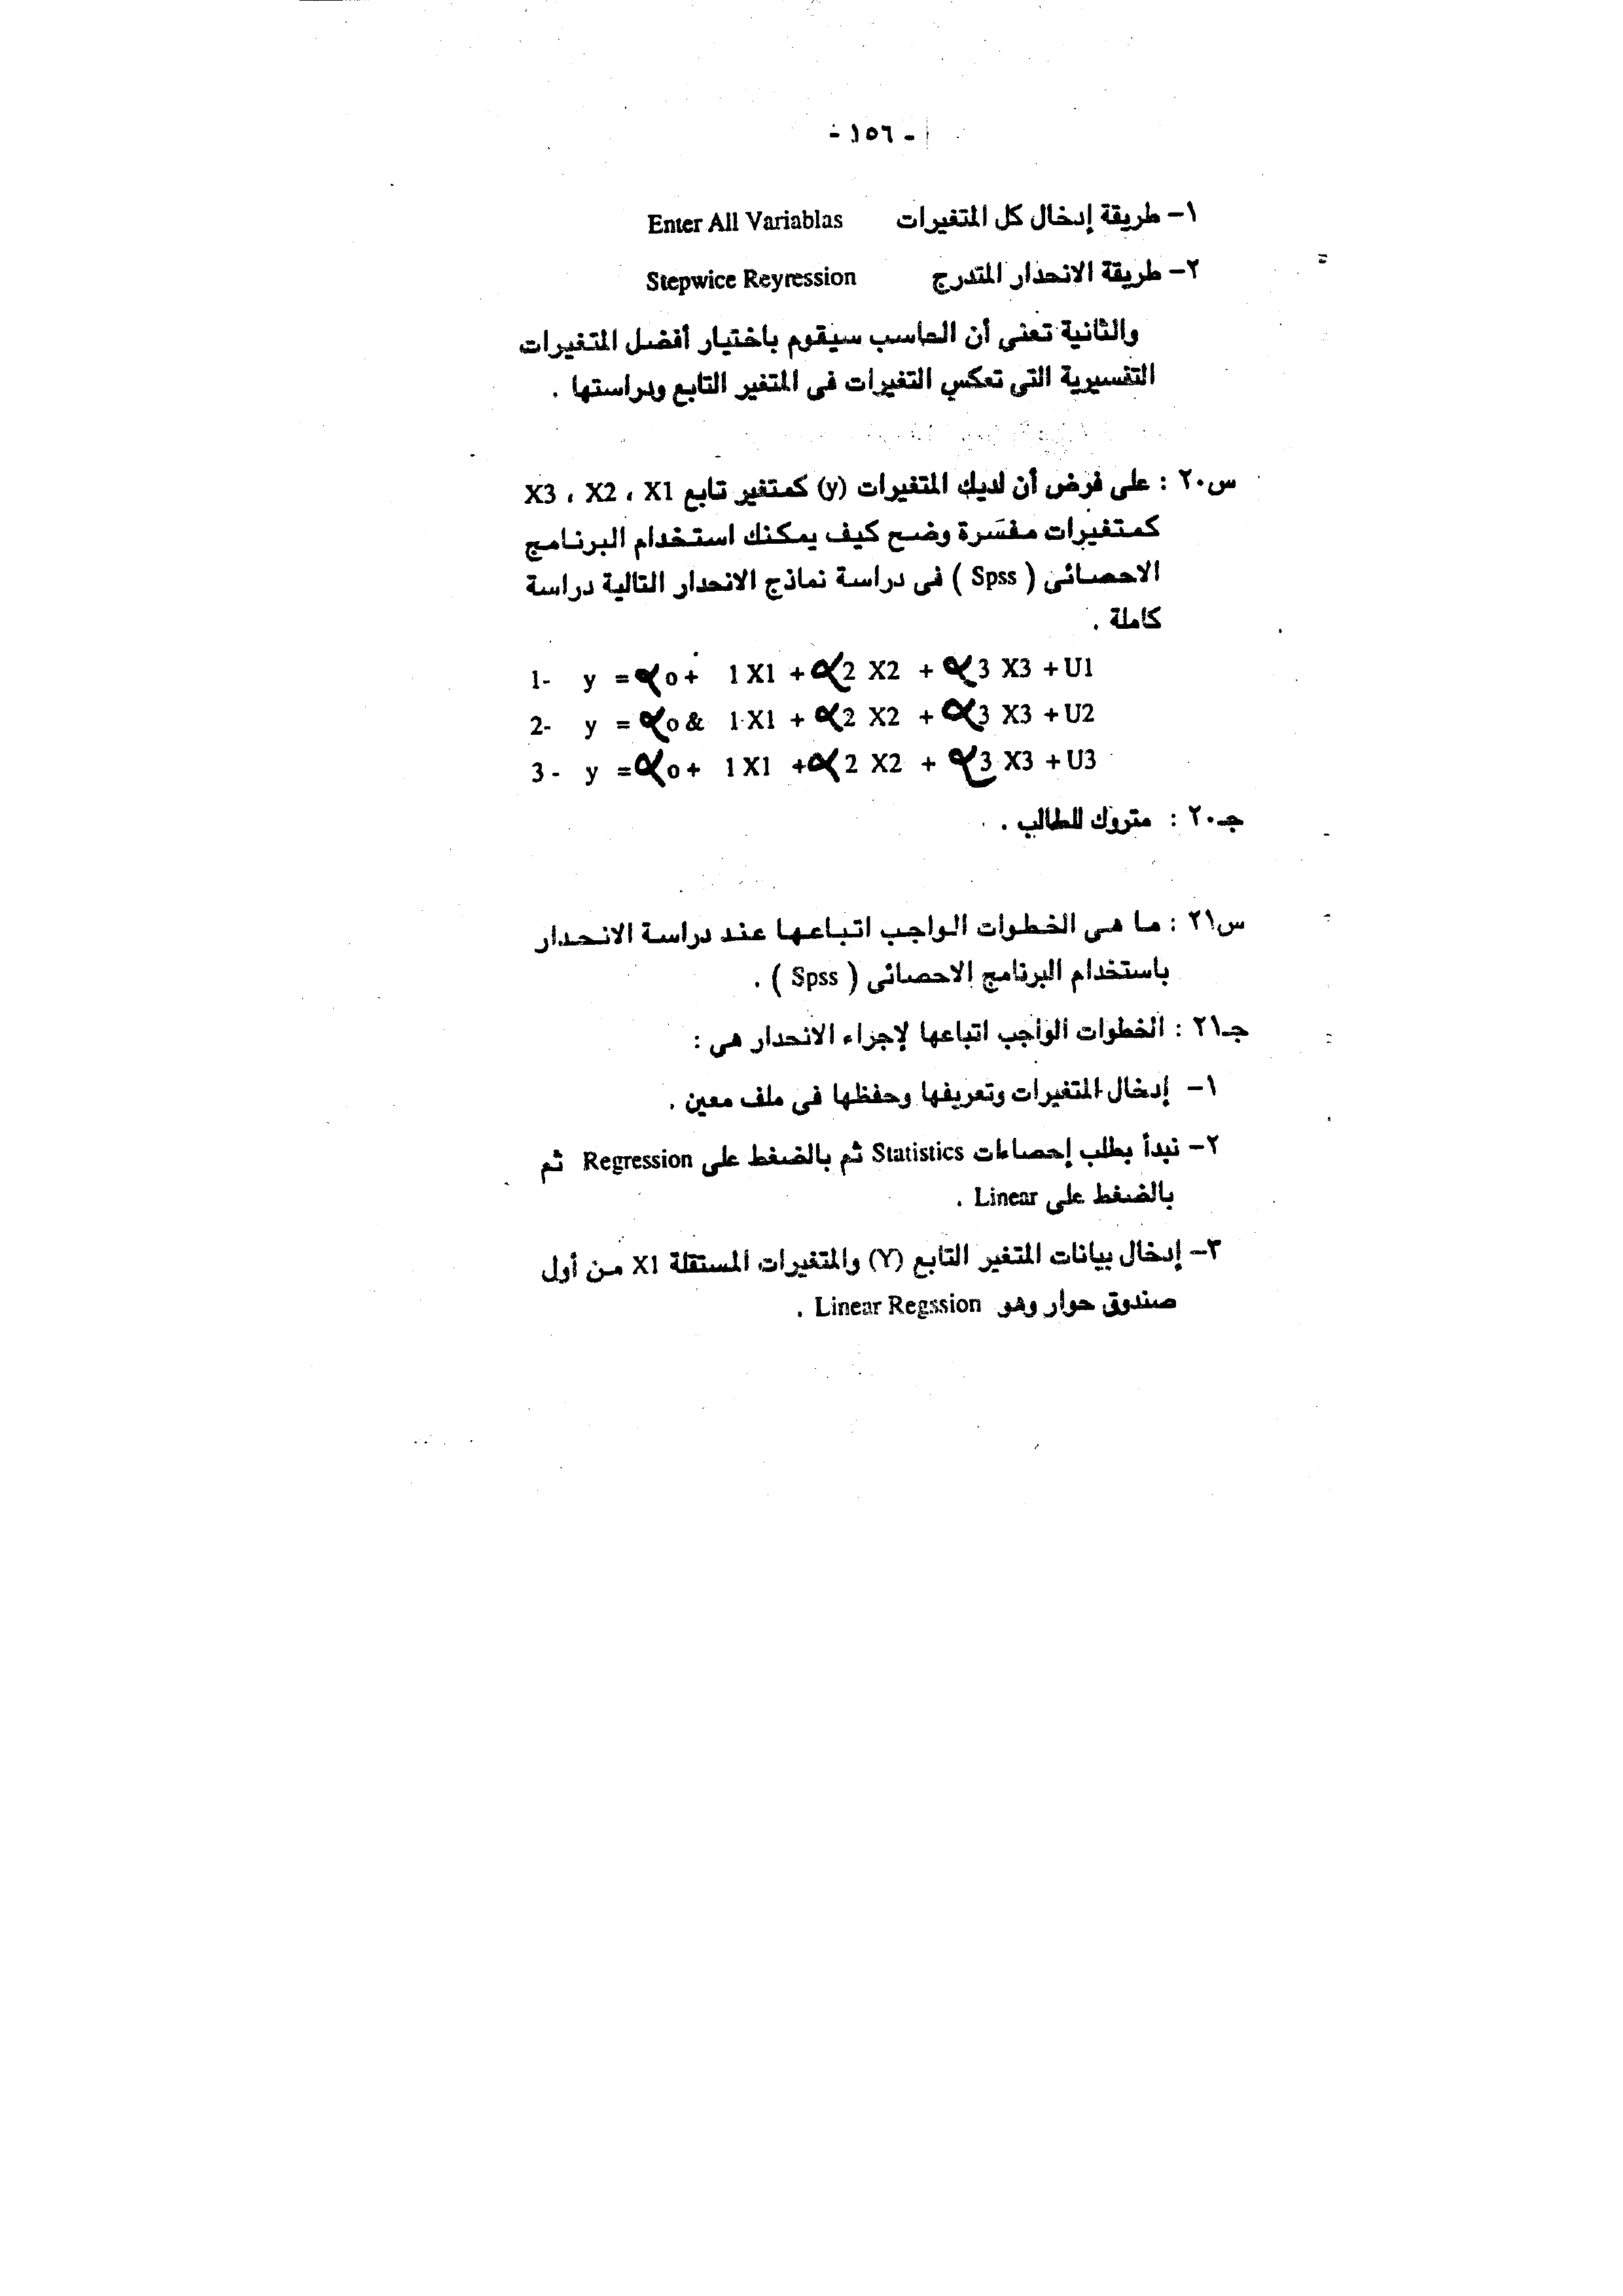 - ١٥٦ -
١- طريقة إدخال كل المتغيرات Enter All Variablas
٢- طريقة الانحدار المتدرج Stepwice Reyression
والثانية تعنى أن الحاسب سيقوم باختيار أفضل المتغيرات
التفسيرية التى تعكس التغيرات فى المتغير التابع ودراستها .
س٢٠ : على فرض أن لديك المتغيرات (y) كمتغير تابع X3 ، X2 ، X1
كمتغيرات مفسَرة وضح كيف يمكنك استخدام البرنامج
الاحصائى ( Spss ) فى دراسة نماذج الانحدار التالية دراسة
كاملة .
1- y = αo + 1 X1 + α2 X2 + α3 X3 + U1
2- y = αo & 1 X1 + α2 X2 + α3 X3 + U2
3 - y = αo + 1 X1 + α2 X2 + α3 X3 + U3
جـ٢٠ : متروك للطالب .
س٢١ : ما هى الخطوات الواجب اتباعها عند دراسة الانحدار
باستخدام البرنامج الاحصائى ( Spss ) .
جـ٢١ : الخطوات الواجب اتباعها لإجراء الانحدار هى :
١- إدخال المتغيرات وتعريفها وحفظها فى ملف معين .
٢- نبدأ بطلب إحصاءات Statistics ثم بالضغط على Regression ثم
بالضغط على Linear .
٣- إدخال بيانات المتغير التابع (Y) والمتغيرات المستقلة X1 من أول
صندوق حوار وهو Linear Regssion .